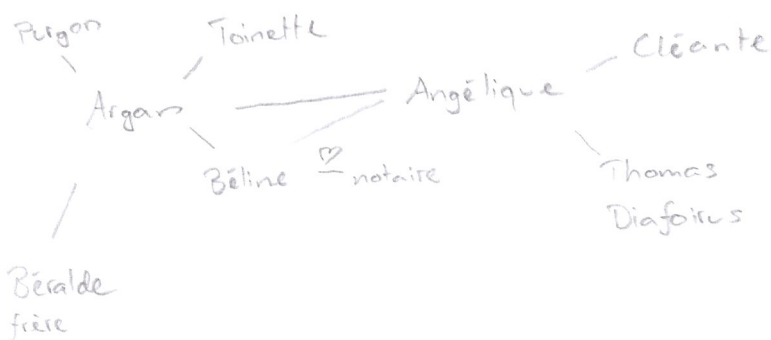 Purgon
Toinette
Cléante
Argan
Angélique
Béline ♡ notaire
Thomas
Diafoirus
Béralde
frère